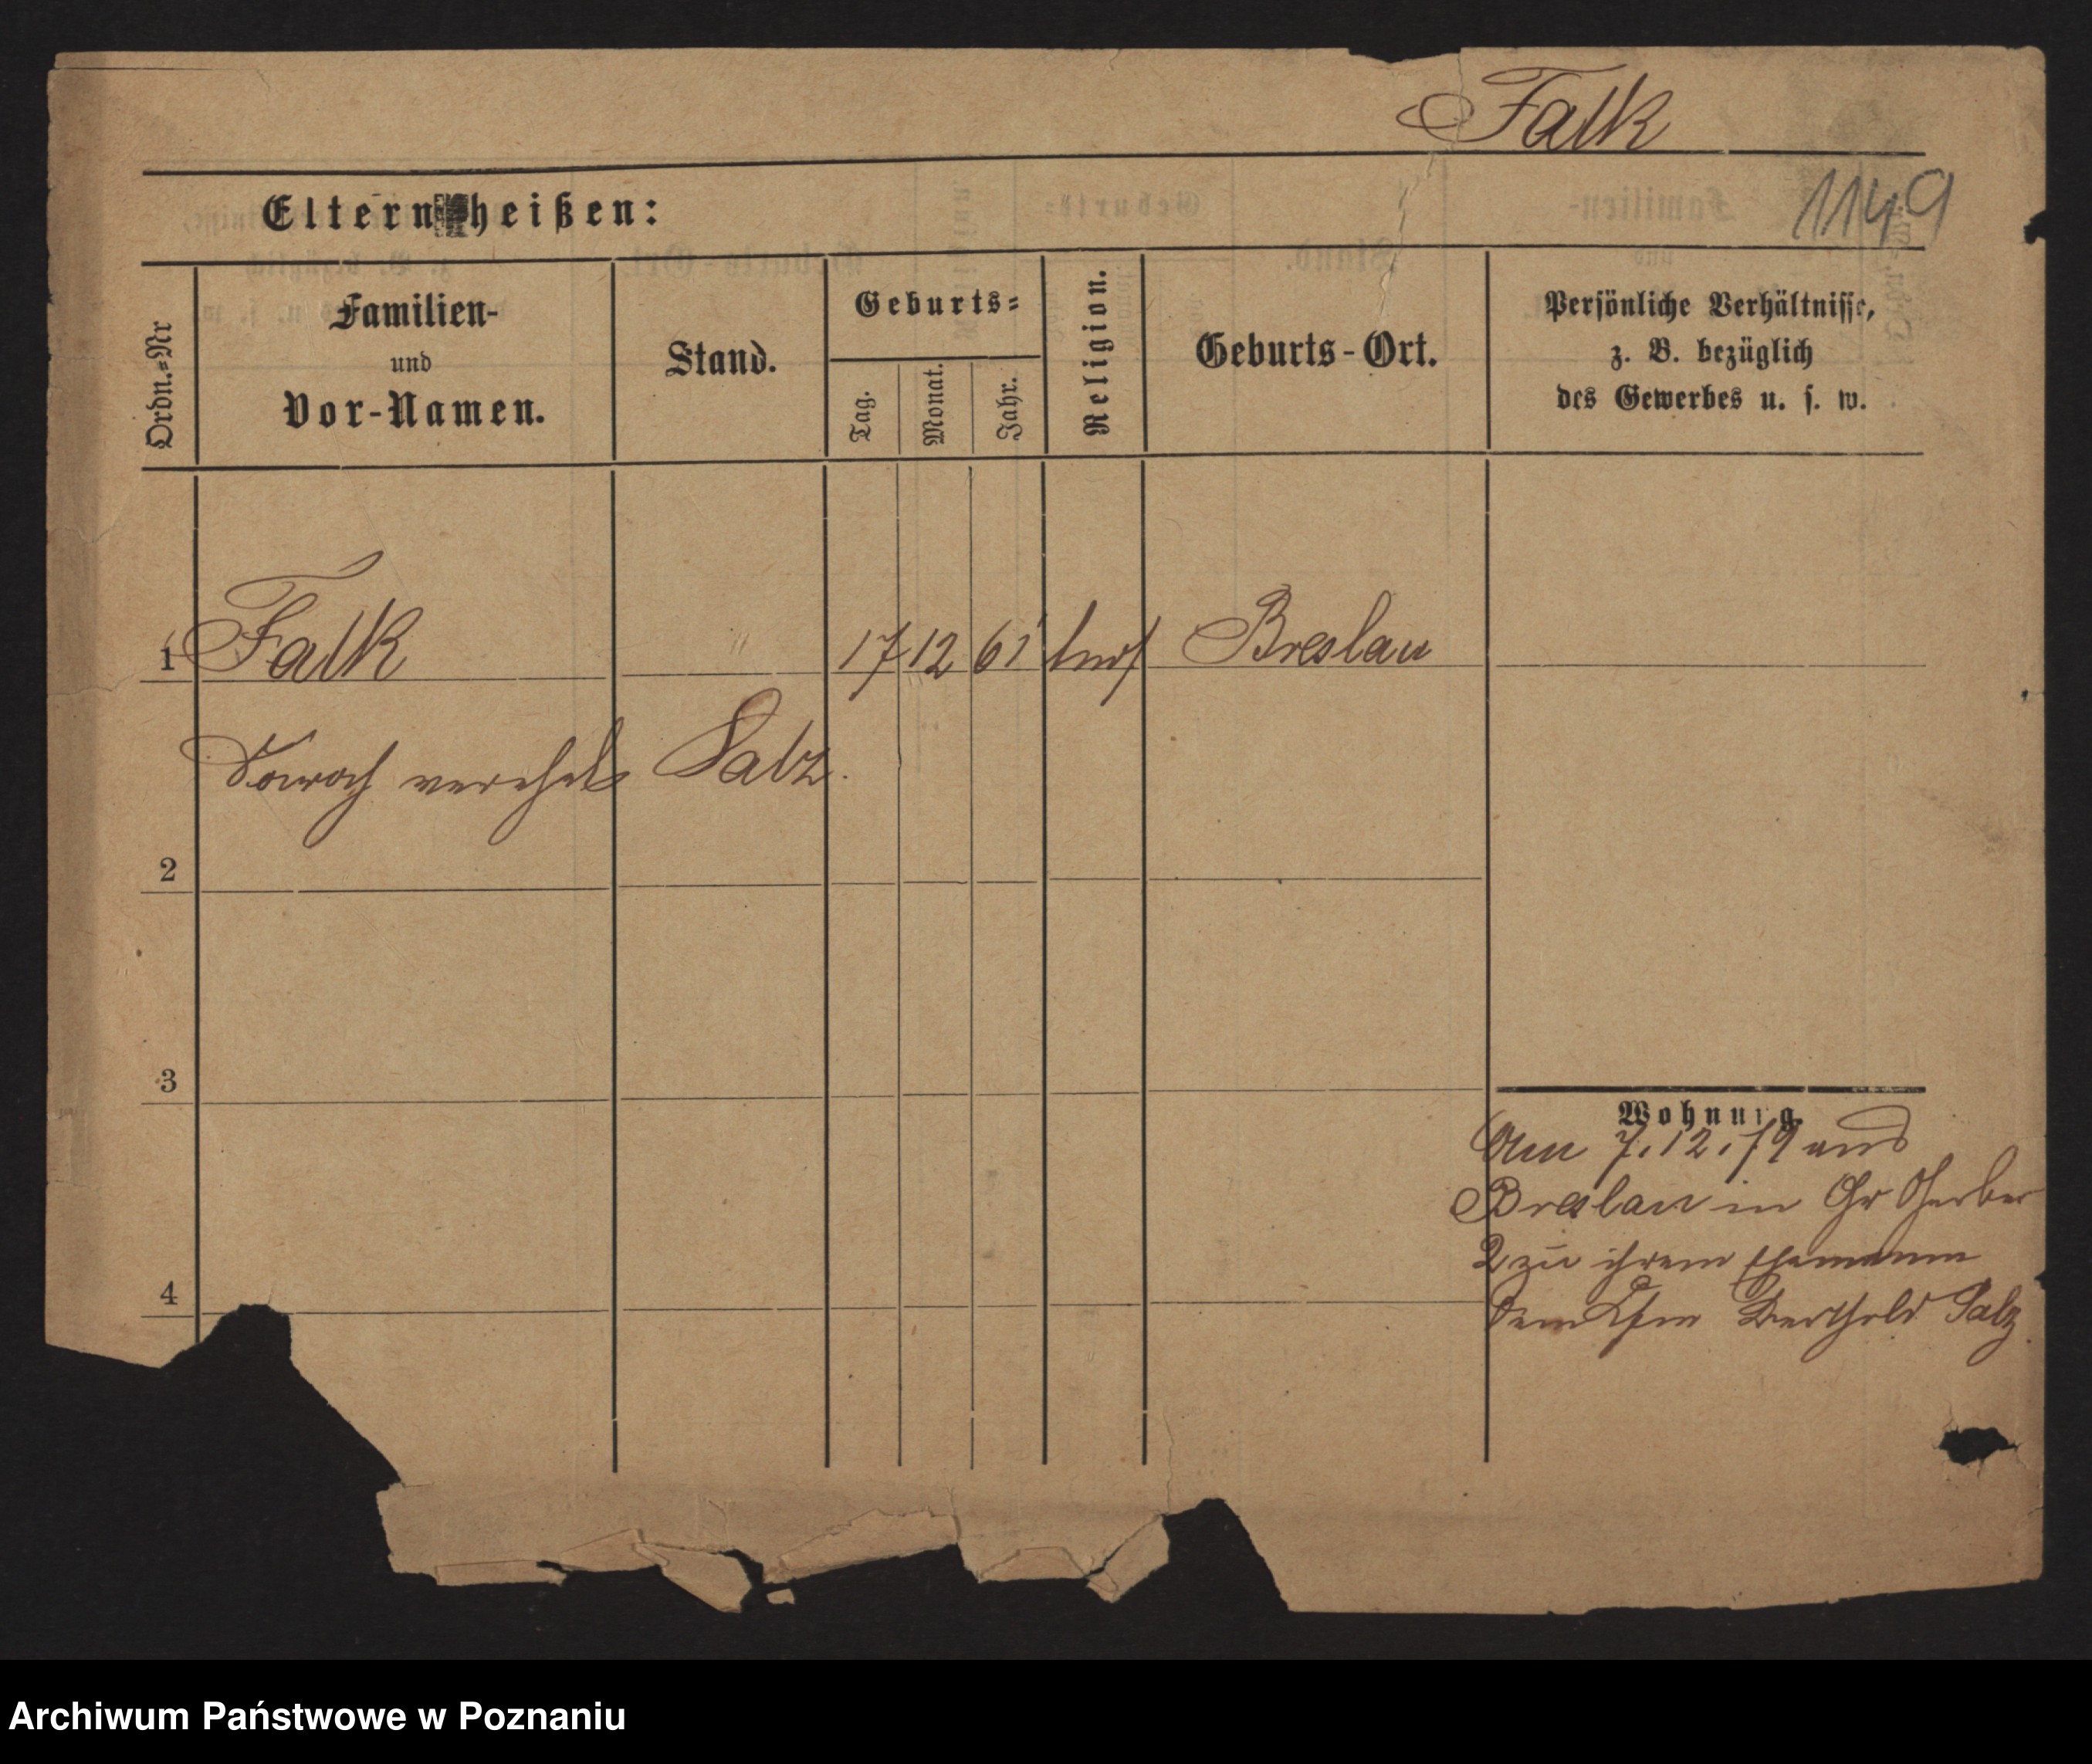 Falk
1149
Eltern heißen:
Ordn.=Nr
Familien-
und
Vor-Namen.
Stand.
Geburts=
Tag.
Monat.
Jahr.
Religion.
Geburts-Ort.
Persönliche Verhältnisse,
z. B. bezüglich
des Gewerbes u. s. w.
1 Falk " 17 12 61 Breslau
verehel Salz.
2
3
4
Wohnung
Am 7.12.79 aus
Breslau in Gr Gerber
2 zu ihrem Ehemann
dem Kfm Berthold Salz
Archiwum Państwowe w Poznaniu